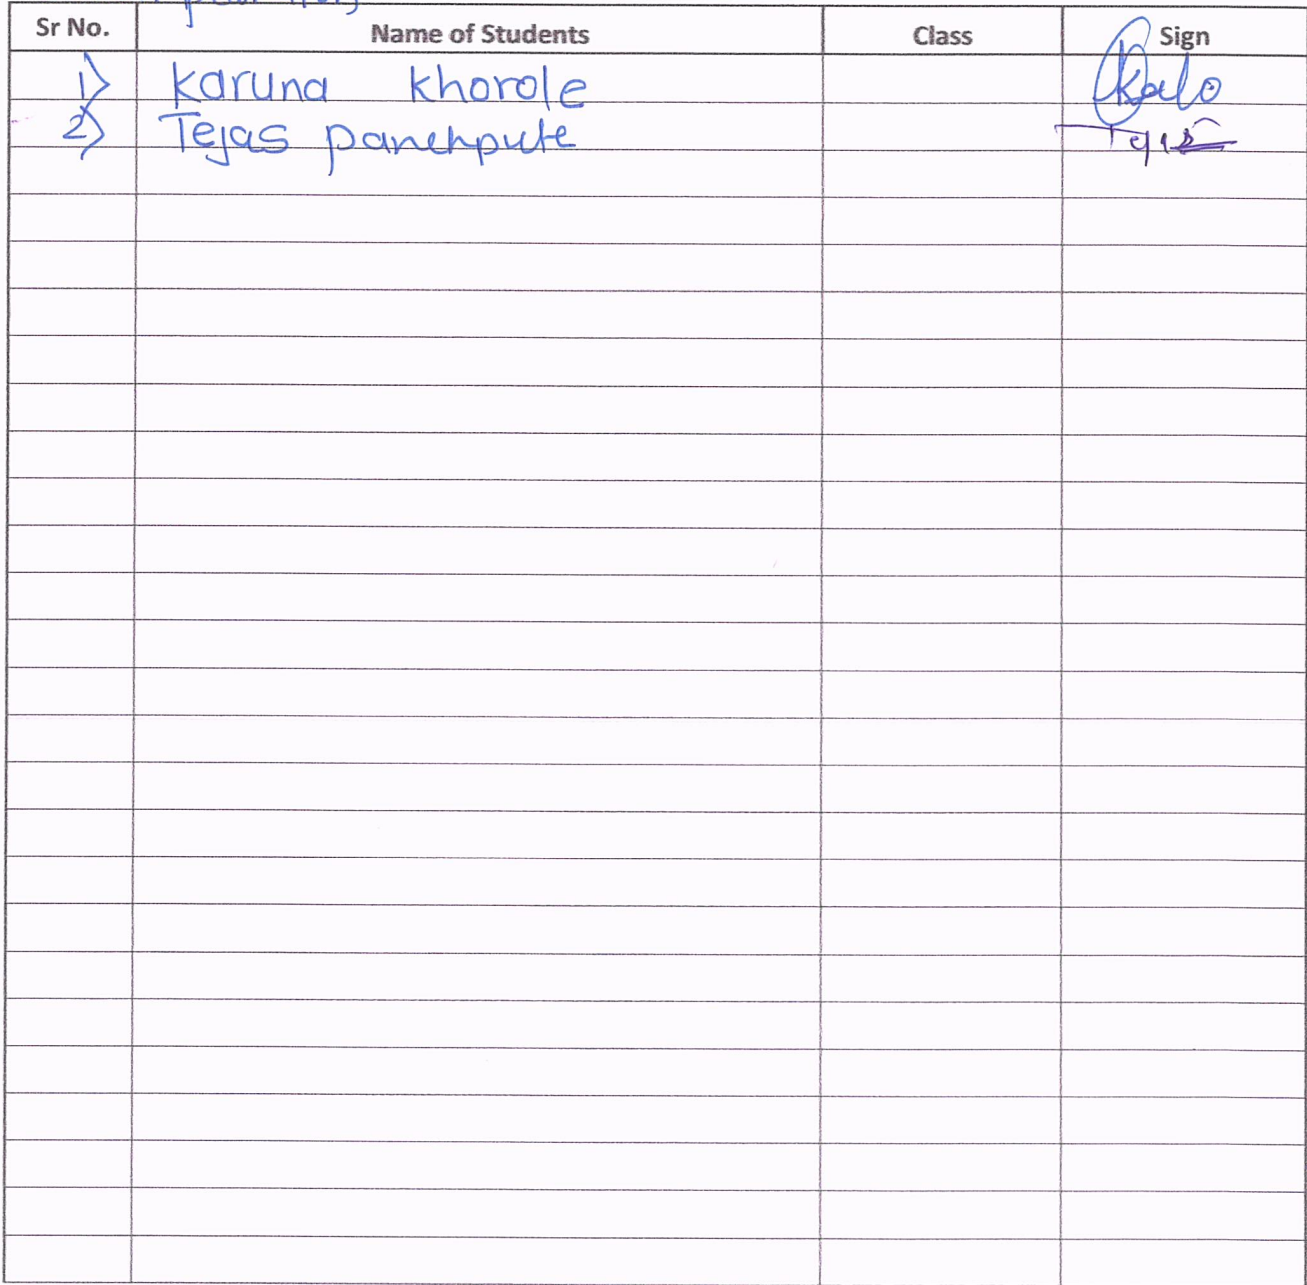 Sr No. Name of Students Class Sign
1) Karuna khorole
2) Tejas panchpute